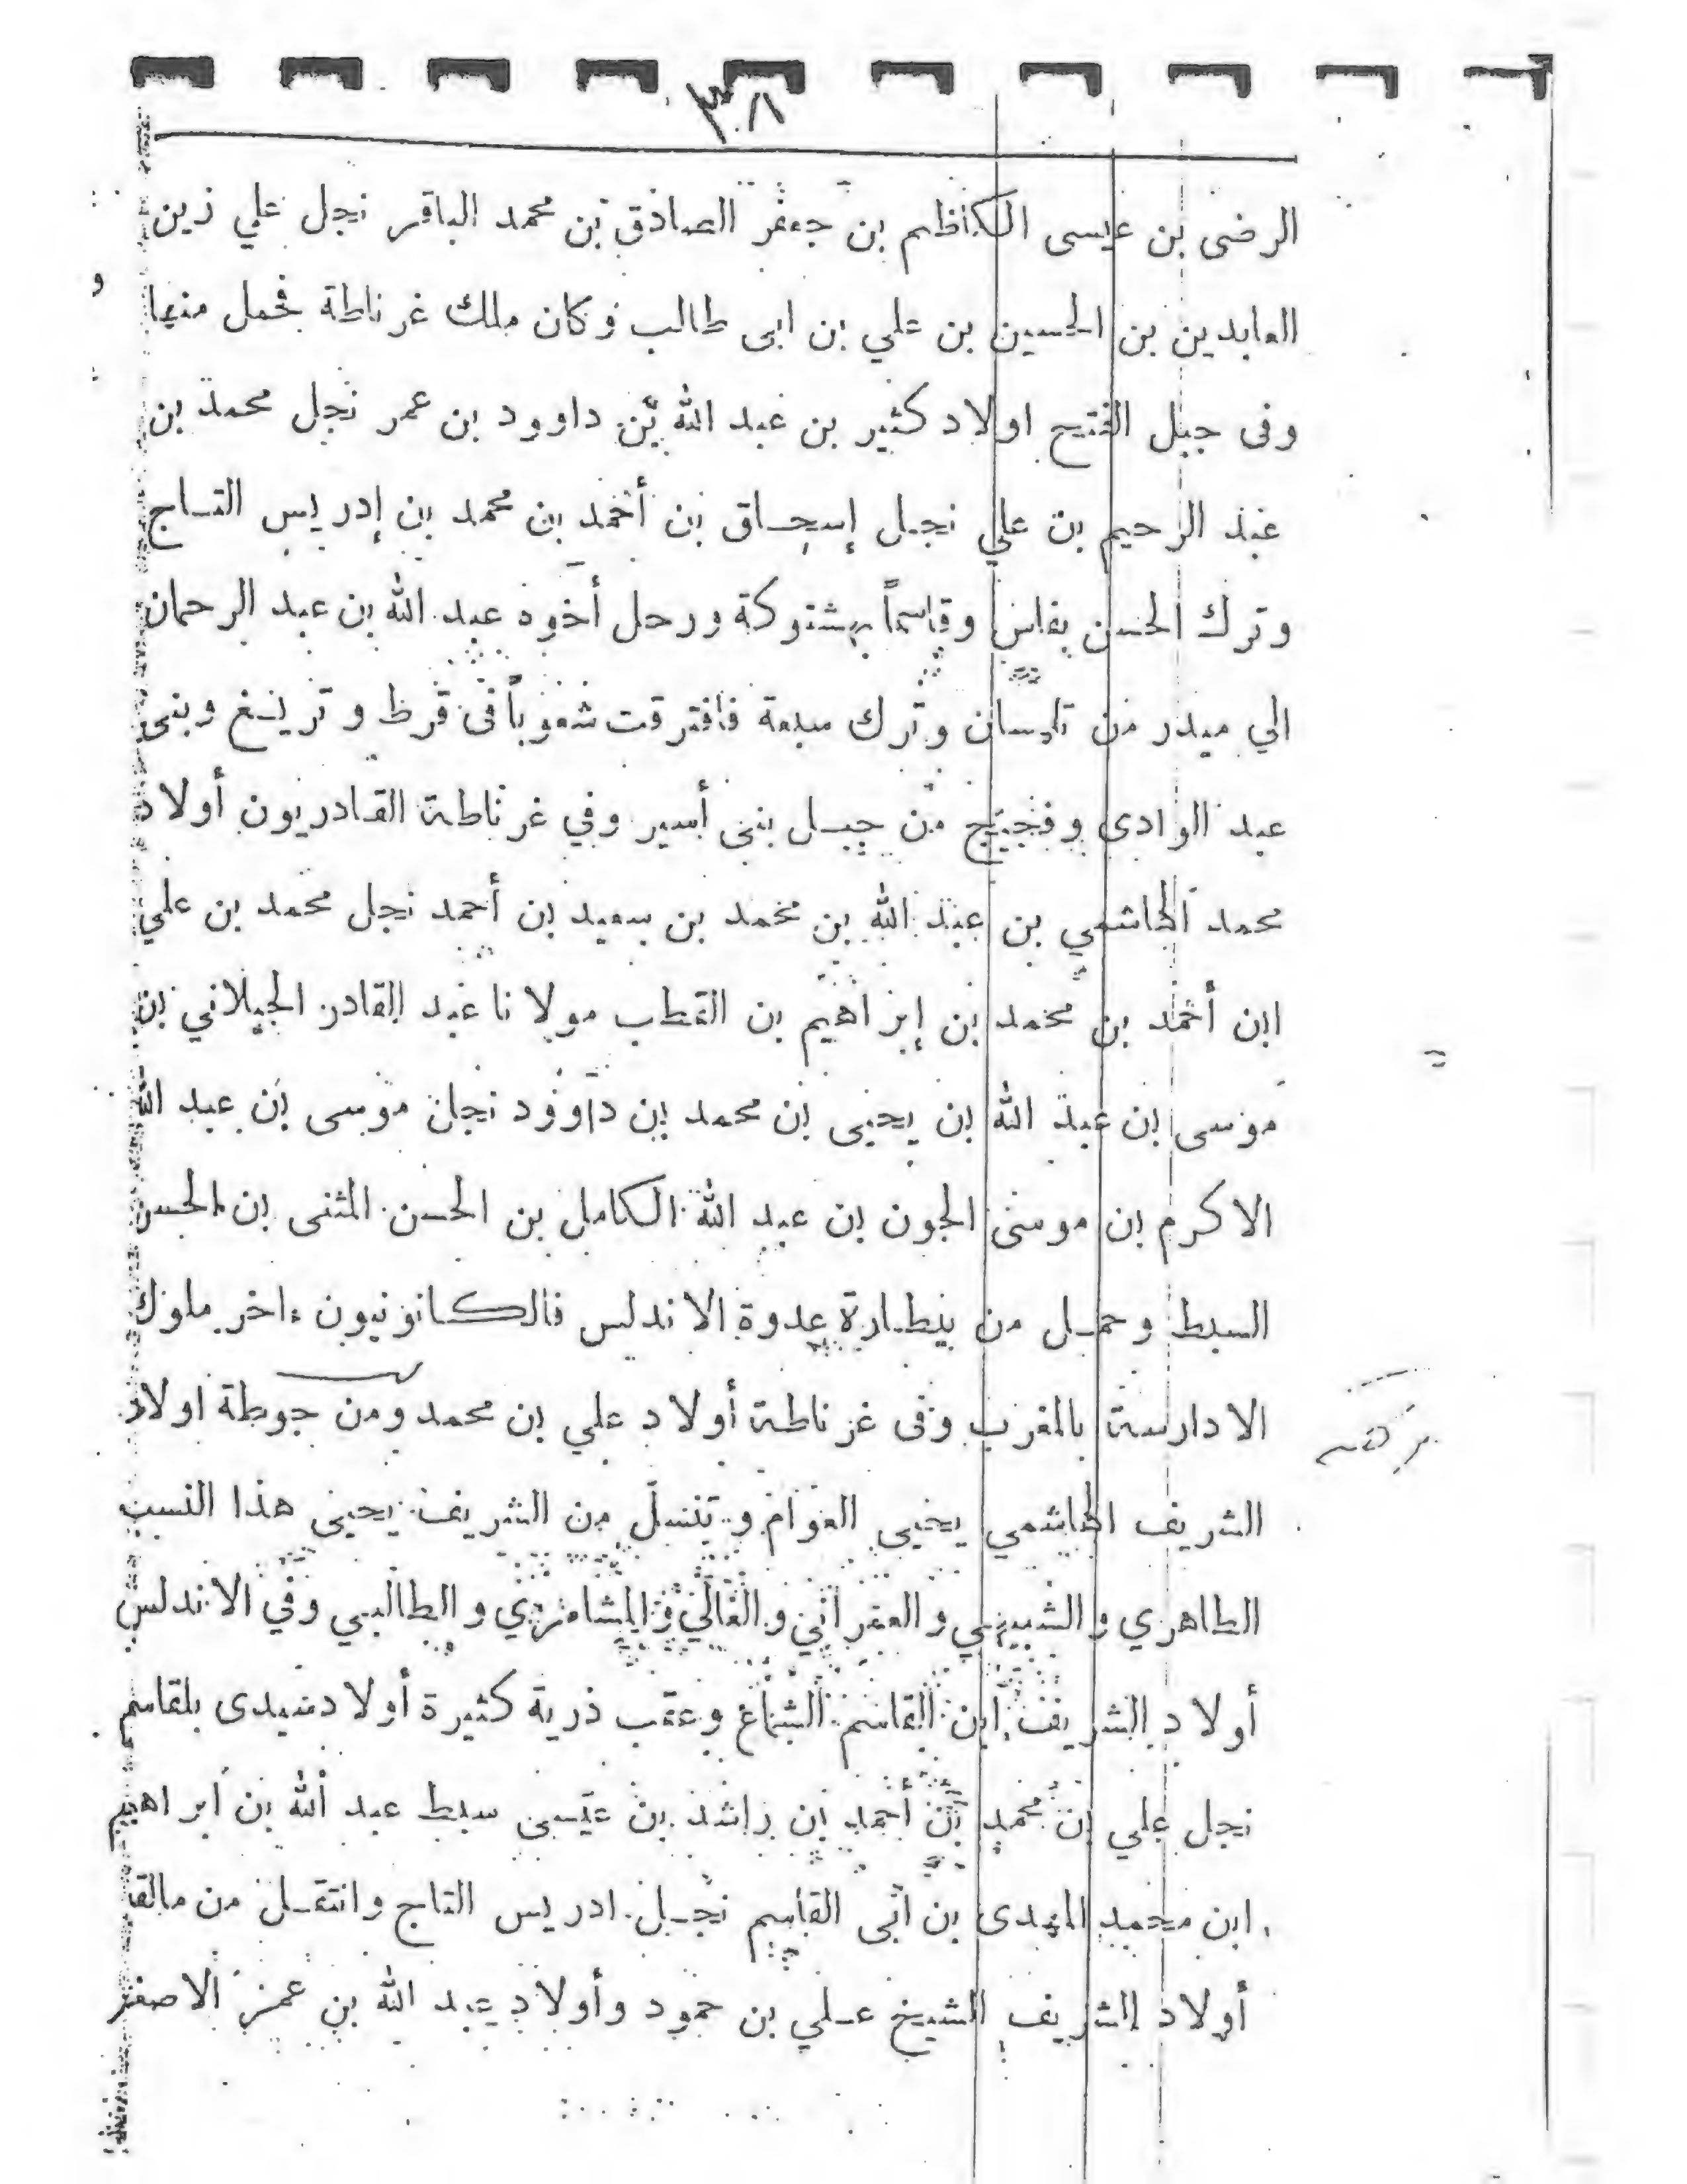 ٣٠٨
الرضى بن عيسى الكاظم بن جعفر الصادق بن محمد الباقر نجل علي زين
العابدين بن الحسين بن علي بن ابى طالب وكان ملك غرناطة فحمل منها
وفى جبل الفتيح اولاد كثير بن عبد الله بن داوود بن عمر نجل محمد بن
عبد الرحيم بن علي نجل إسحاق بن أحمد بن محمد بن إدريس التاج
وترك الحسن بفاس وقاسماً بشتوكة ورحل أخوه عبد الله بن عبد الرحمان
الي ميدر من تلمسان وترك سبعة فافترقت شعوباً فى قرظ وترينغ وبنى
عبد الوادى وفجيج من جبل بنى أسير وفي غرناطة القادريون أولاد
محمد الهاشمي بن عبد الله بن محمد بن سعيد بن أحمد نجل محمد بن علي
ابن أحمد بن محمد بن إبراهيم بن القطاب مولانا عبد القادر الجيلاني بن
موسى بن عبد الله بن يحيى بن محمد بن داوود نجل موسى بن عبد الله
الاكرم بن موسى الجون بن عبد الله الكامل بن الحسن المثنى بن الحسن
السبط وحمل من بيطارة عدوة الاندلس فالكانونيون ءاخر ملوك
الادارسة بالمغرب وفى غرناطة أولاد علي بن محمد ومن جوطة اولاد
الشريف الهاشمي يحيى العوام وتنسل من الشريف يحيى هذا النسب
الطاهري والشبيهي والعمراني والغالي والطالبي وفي الاندلس
أولاد الشريف ابن القاسم الشماع وعقب ذرية كثيرة أولاد سيدى بلقاسم
نجل علي بن محمد بن أحمد بن راشد بن عيسى سبط عبد الله بن ابراهيم
ابن محمد المهدى بن أبى القاسم نجل ادريس التاج وانتقل من مالقة
أولاد الشريف الشيخ علي بن حمود وأولاد عبد الله بن عمر الاصغر